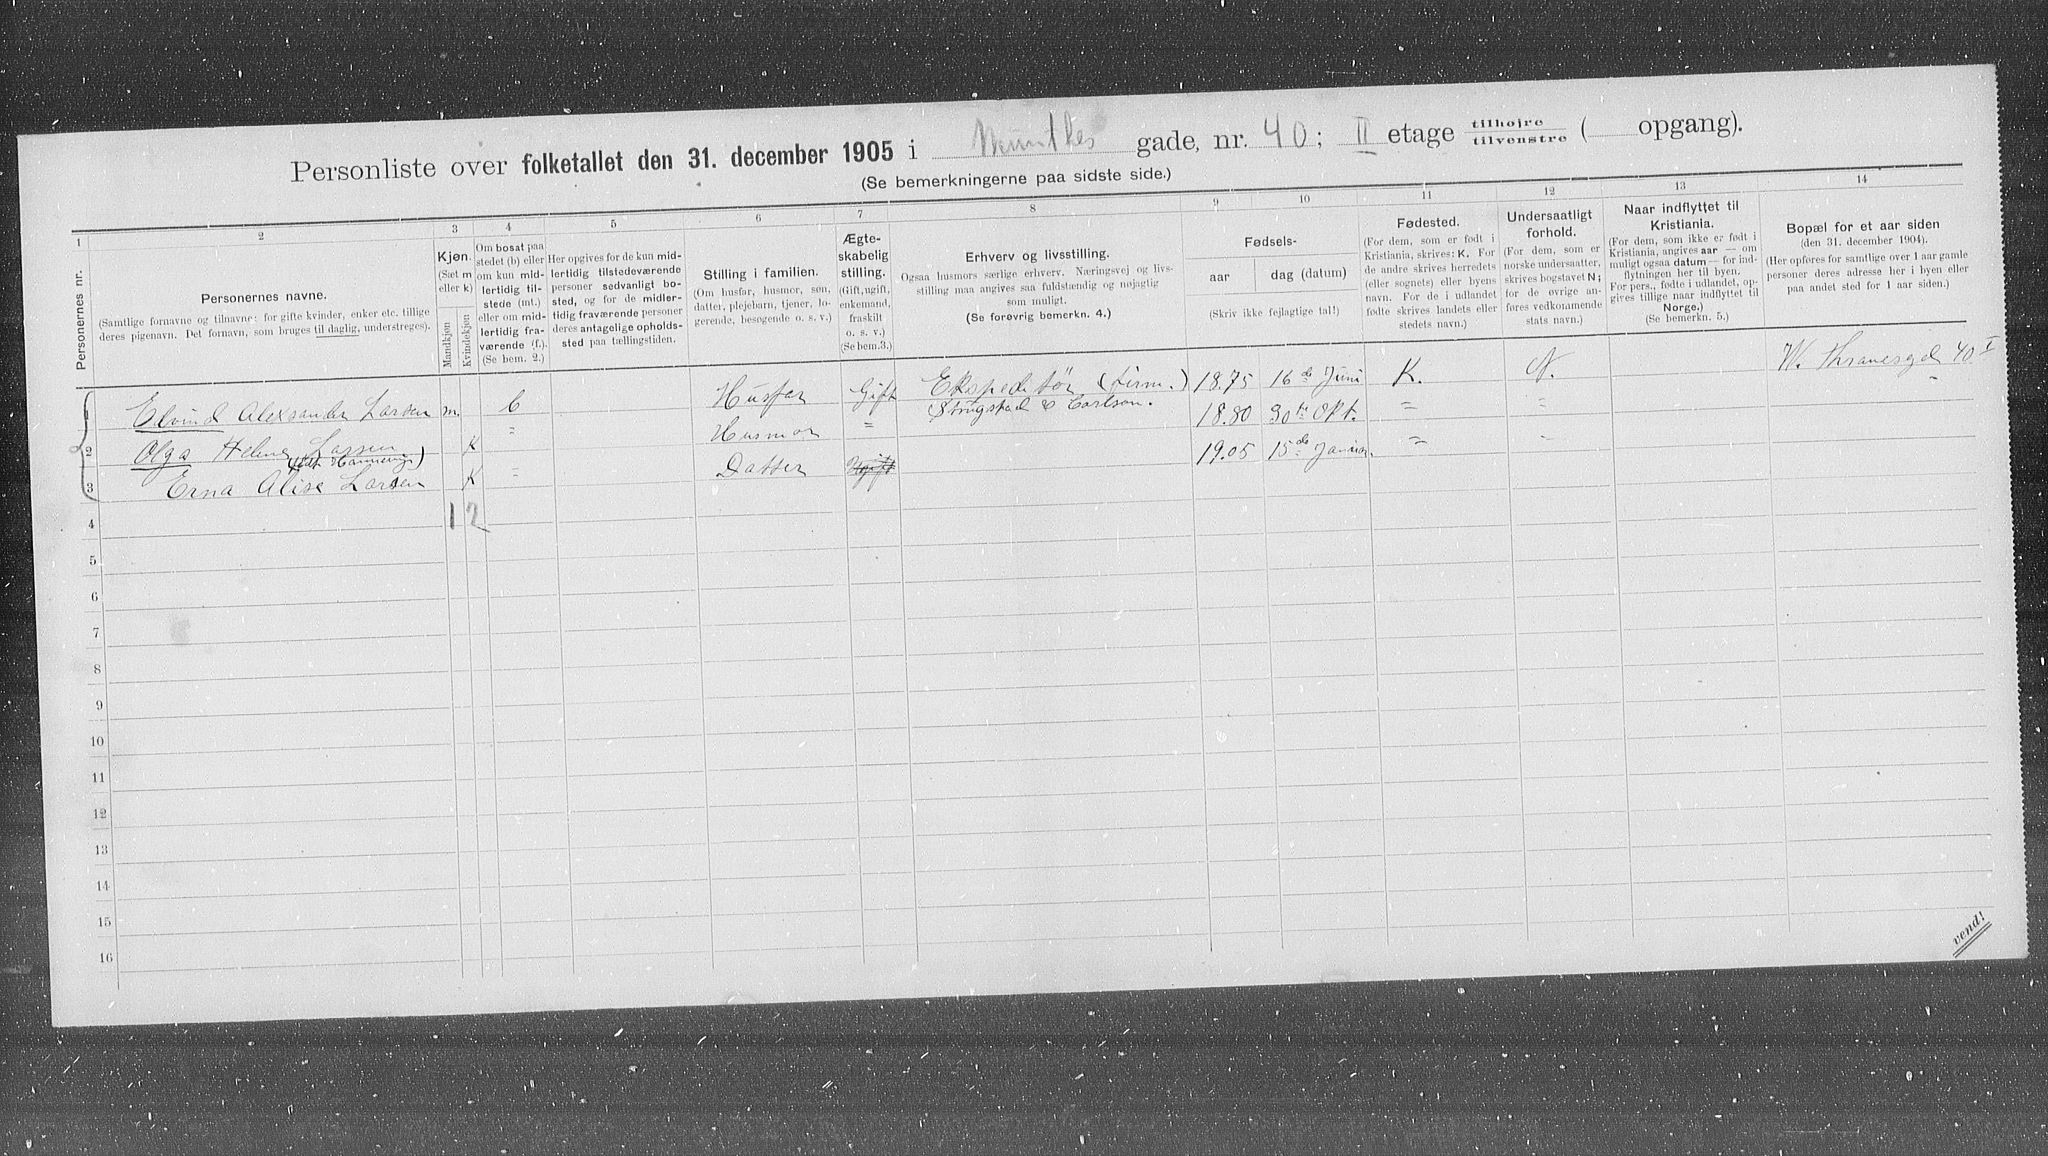 Personliste over folketallet den 31. december 1905 i Munthes gade, nr. 40; II etage tilhøjre tilvenstre ( opgang).
(Se bemerkningerne paa sidste side.)
1 2 3 4 5 6 7 8 9 10 11 12 13 14
Personernes nr.
Personernes navne.
(Samtlige fornavne og tilnavne; for gifte kvinder, enker etc. tillige
deres pigenavn. Det fornavn, som bruges til daglig, understreges).
Kjøn.
(Sæt m
eller k)
Mandkjøn
Kvindekjøn
Om bosat paa
stedet (b) eller
om kun mid-
lertidig til-
stede (mt.)
eller om mid-
lertidig fra-
værende (f.).
(Se bem. 2.)
Her opgives for de kun mid-
lertidig tilstedeværende
personer sedvanligt bo-
sted, og for de midler-
tidig fraværende personer
deres antagelige opholds-
sted paa tællingstiden.
Stilling i familien.
(Om husfar, husmor, søn,
datter, plejebarn, tjener, lo-
gerende, besøgende o. s. v.)
Ægte-
skabelig
stilling.
(Gift, ugift,
enkemand,
fraskilt
o. s. v.)
(Se bem.3.)
Erhverv og livsstilling.
Ogsaa husmors særlige erhverv. Næringsvej og livs-
stilling maa angives saa fuldstændig og nøjagtig
som muligt.
(Se forøvrig bemerkn. 4.)
Fødsels-
aar dag (datum)
(Skriv ikke fejlagtige tal!)
Fødested.
(For dem, som er født i
Kristiania, skrives: K. For
de andre skrives herredets
(eller sognets) eller byens
navn. For de i udlandet
fødte skrives landets eller
stedets navn.)
Undersaatligt
forhold.
(For dem, som er
norske undersaatter,
skrives bogstavet N;
for de øvrige an-
føres vedkommende
stats navn.)
Naar indflyttet til
Kristiania.
(For dem, som ikke er født i
Kristiania, angives aar — om
muligt ogsaa datum — for ind-
flytningen her til byen.
For pers., fødte i udlandet, op-
gives tillige naar indflyttet til
Norge.)
(Se bemerkn. 5.)
Bopæl for et aar siden
(den 31. december 1904).
(Her opføres for samtlige over 1 aar gamle
personer deres adresse her i byen eller
paa andet sted for 1 aar siden.)
1 Eivind Alexsander Larsen m. b Husfar Gift Ekspeditør (firm.) 1875 16de Juni K. N. W. Thranesgd 40 I
Strugstad & Carlson.
2 Olga Helene Larsen K " Husmor " 1880 30te Okt. " "
3 Erna Alise Larsen K " Datter Ugift 1905 15de Januar. " "
4 1 2
5
6
7
8
9
10
11
12
13
14
15
16
vend!